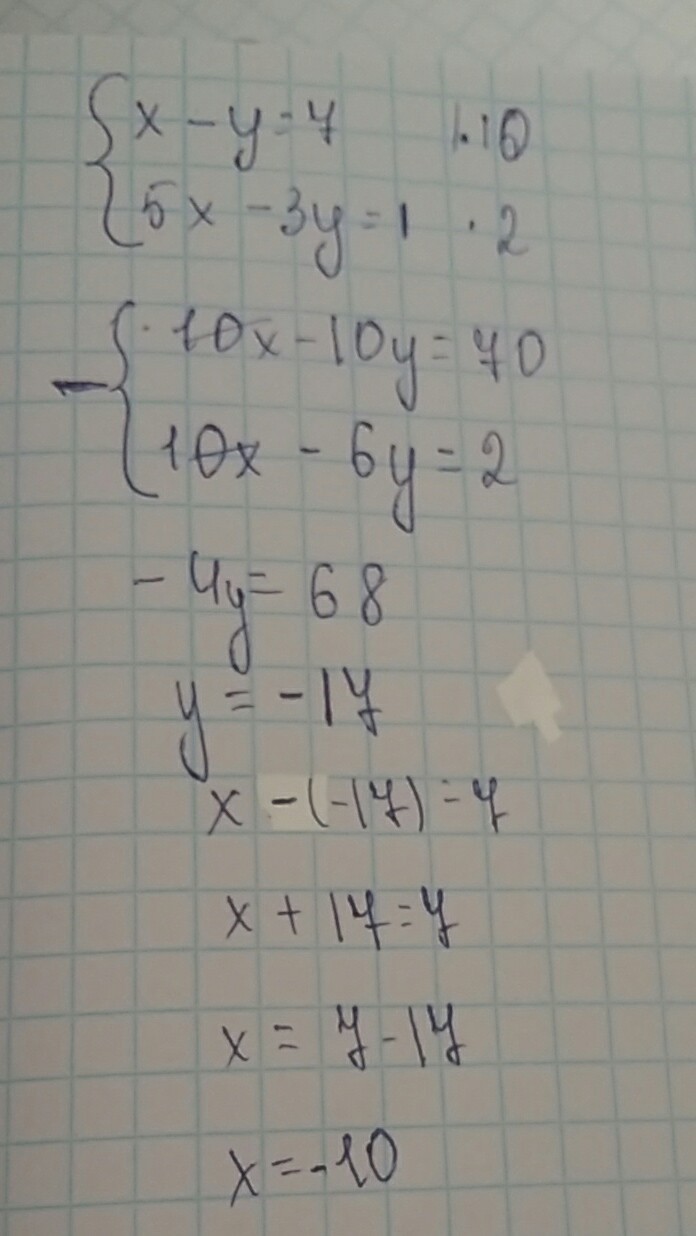 x - y = 7 |·10
5x - 3y = 1 ·2
10x - 10y = 70
10x - 6y = 2
- 4y = 68
y = -17
x - (-17) = 7
x + 17 = 7
x = 7 - 17
x = -10